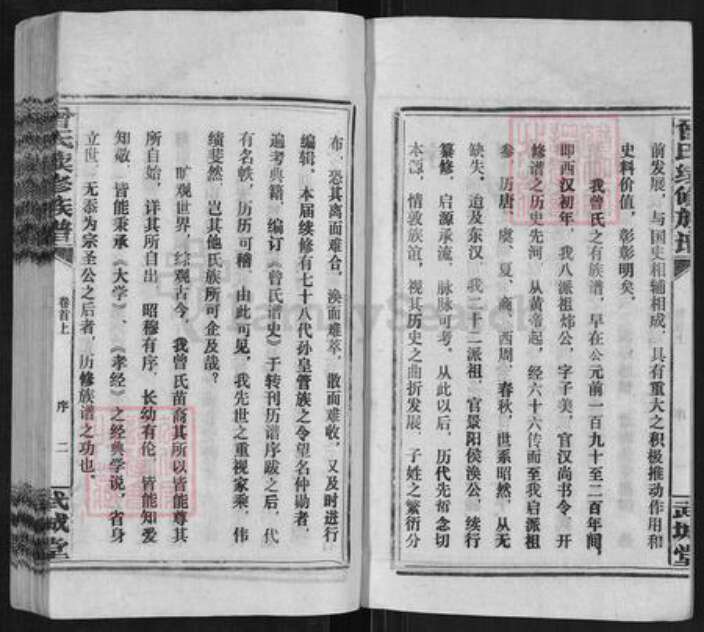 曾氏续修族谱
武城堂
前发展，与国史相辅相成，具有重大之积极推动作用和
史料价值，彰彰明矣。
我曾氏之有族谱，早在公元前一百九十至二百年间，
即西汉初年，我八派祖炜公，字子美，官汉尚书令，开
修谱之历史先河，从黄帝起，经六十六传而至我启派祖
参，历唐、虞、夏、商、西周、春秋，世系昭然，从无
缺失，迨及东汉，我二十二派祖、官景阳侯涣公，续行
纂修，启源承流，脉脉可考，从此以后，历代先哲念切
本源，情敦族谊，视其历史之曲折发展，子姓之繁衍分
布，恐其离而难合，涣而难萃，散而难收，又及时进行
编辑，本届续修有七十八代孙皇管族之令望名仲勋者，
遍考典籍，编订《曾氏谱史》于转刊历谱序跋之后，代
有名轶，历历可稽，由此可见，我先世之重视家乘，伟
绩斐然，岂其他氏族所可企及哉？
旷观世界，综观古今，我曾氏苗裔其所以皆能尊其
所自始，详其所自出，昭穆有序，长幼有伦，皆能知爱
知敬，皆能秉承《大学》、《孝经》之经典学说，省身
立世，无忝为宗圣公之后者，历修族谱之功也。
曾氏续修族谱
卷首上
序
二
武城堂
FamilySearch